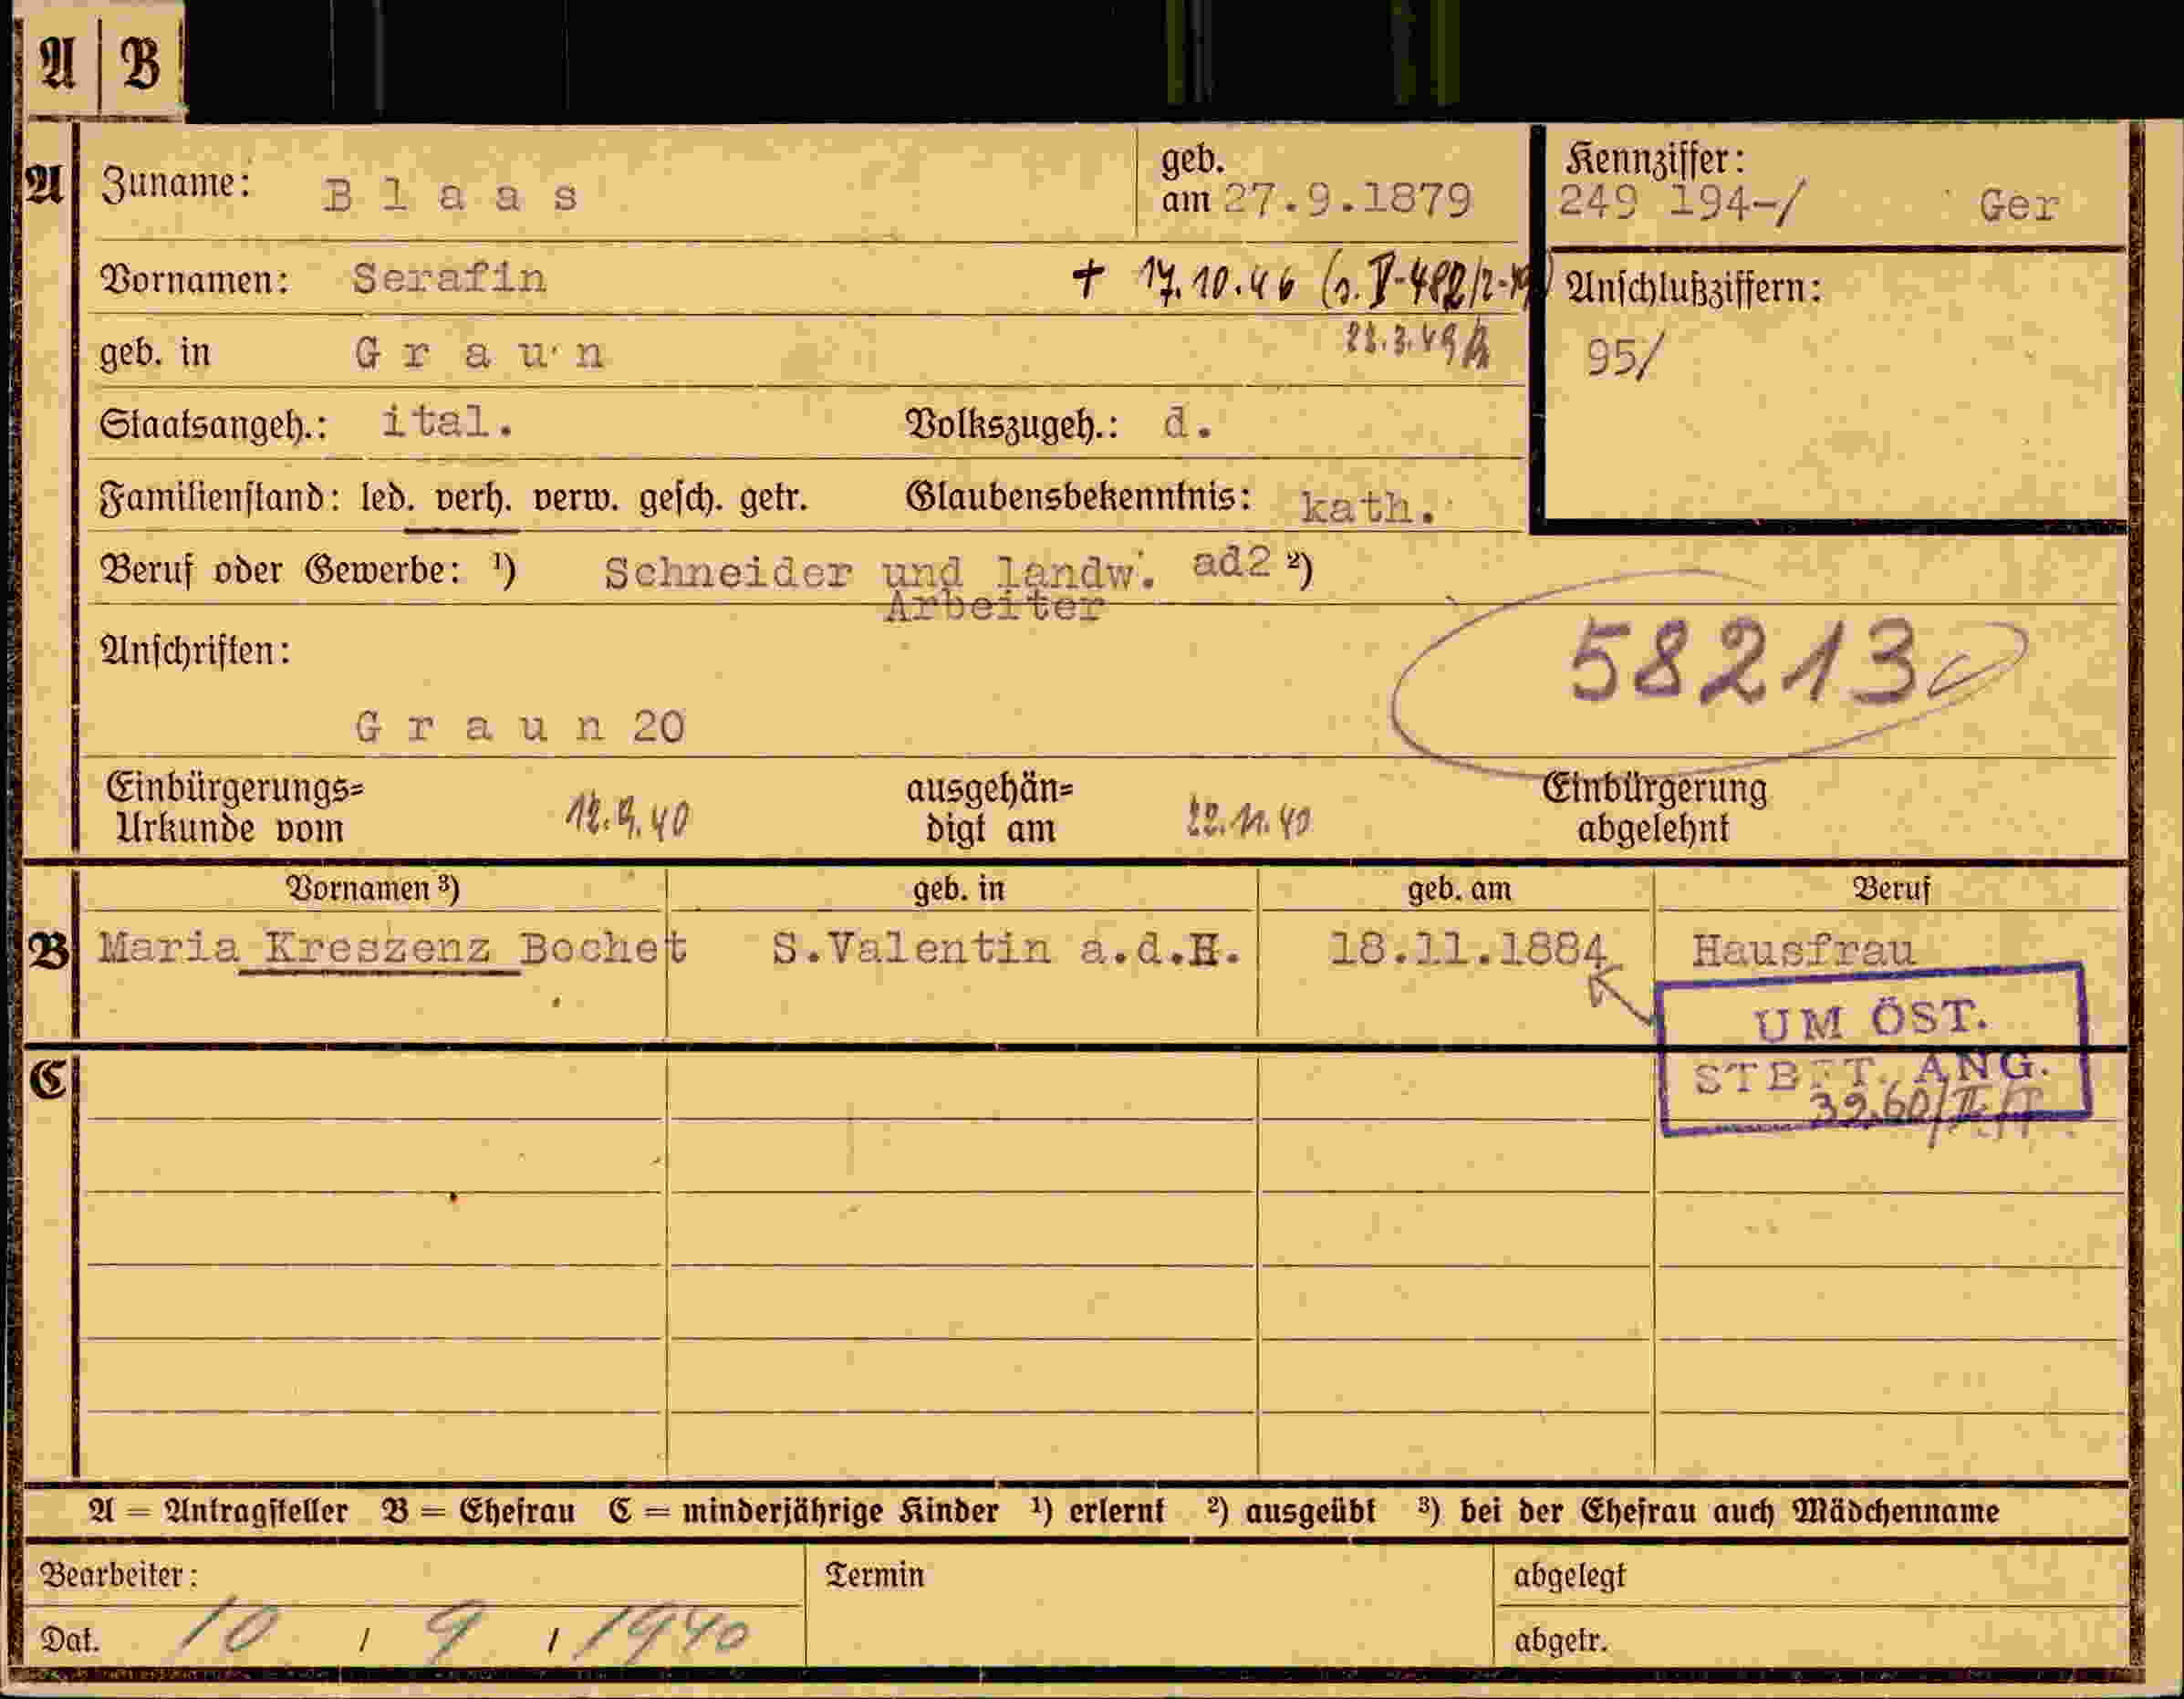 A B
A Zuname: B l a a s geb. am 27.9.1879 Kennziffer: 249 194-/ Ger
Vornamen: Serafin + 17.10.46 Anschlußziffern:
geb. in G r a u n 95/
Staatsangeh.: ital. Volkszugeh.: d.
Familienstand: led. verh. verw. gesch. getr. Glaubensbekenntnis: kath.
Beruf oder Gewerbe: ¹) Schneider und landw. ad2 ²)
Arbeiter
Anschriften: 58213
G r a u n 20
Einbürgerungs= ausgehän= Einbürgerung
Urkunde vom 12.9.40 digt am 22.11.40 abgelehnt
Vornamen ³) geb. in geb. am Beruf
B Maria Kreszenz Bochet S.Valentin a.d.H. 18.11.1884 Hausfrau
UM ÖST.
C ANG.
A = Antragsteller B = Ehefrau C = minderjährige Kinder ¹) erlernt ²) ausgeübt ³) bei der Ehefrau auch Mädchenname
Bearbeiter: Termin abgelegt
Dat. 10 / 9 / 1940 abgetr.